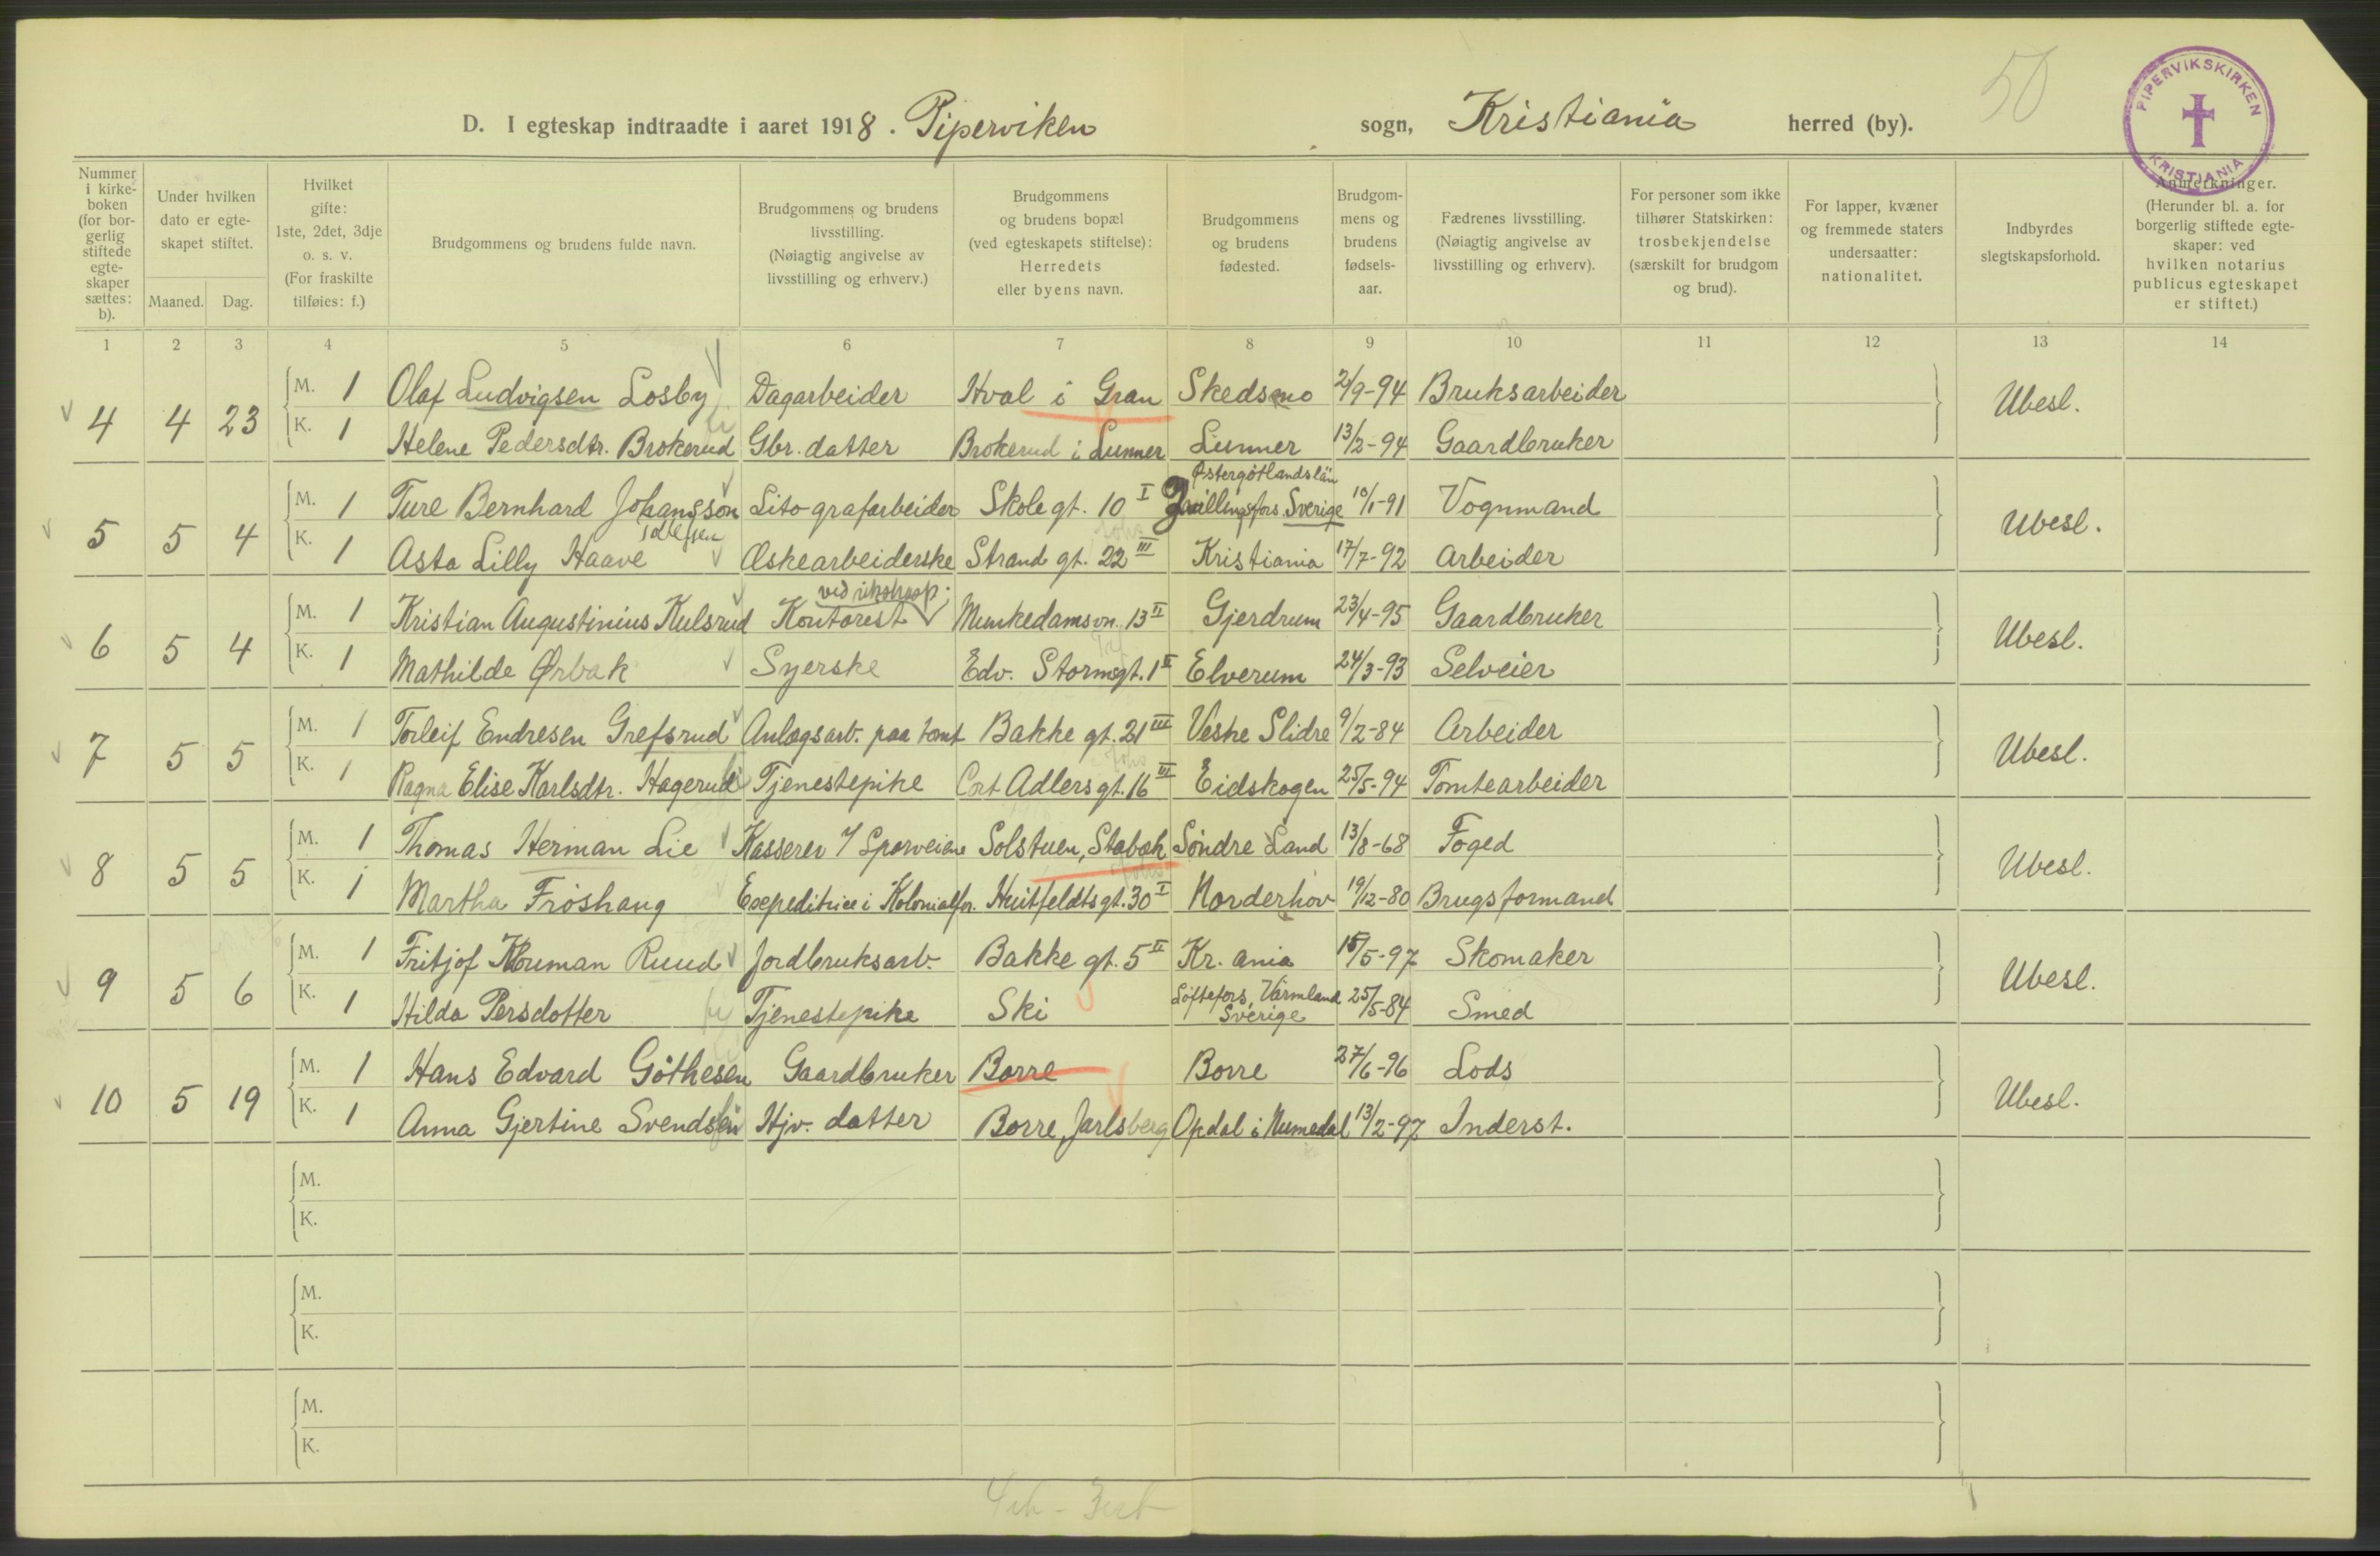 50
PIPERVIKSKIRKEN
KRISTIANIA
D. I egteskap indtraadte i aaret 1918. Piperviken sogn, Kristiania herred (by).
Nummer i kirke-boken (for bor-gerlig stiftede egte-skaper sættes: b).
Under hvilken dato er egte-skapet stiftet.
Maaned. Dag.
Hvilket gifte: 1ste, 2det, 3dje o. s. v. (For fraskilte tilføies: f.)
Brudgommens og brudens fulde navn.
Brudgommens og brudens livsstilling. (Nøiagtig angivelse av livsstilling og erhverv.)
Brudgommens og brudens bopæl (ved egteskapets stiftelse): Herredets eller byens navn.
Brudgommens og brudens fødested.
Brudgom-mens og brudens fødsels-aar.
Fædrenes livsstilling. (Nøiagtig angivelse av livsstilling og erhverv).
For personer som ikke tilhører Statskirken: trosbekjendelse (særskilt for brudgom og brud).
For lapper, kvæner og fremmede staters undersaatter: nationalitet.
Indbyrdes slegtskapsforhold.
Anmerkninger. (Herunder bl. a. for borgerlig stiftede egte-skaper: ved hvilken notarius publicus egteskapet er stiftet.)
1 2 3 4 5 6 7 8 9 10 11 12 13 14
4 4 23 M. 1 Olaf Ludvigsen Losby Dagarbeider Hval i Gran Skedsmo 2/9-94 Bruksarbeider Ubesl.
K. 1 Helene Pedersdtr. Brokerud Gbr. datter Brokerud i Lunner Lunner 13/2-94 Gaardbruker
5 5 4 M. 1 Ture Bernhard Johansson Litografarbeider Skole gt. 10 I Østergötlandslän Sverige 10/1-91 Vognmand Ubesl.
K. 1 Asta Lilly Haave Æskearbeiderske Strand gt. 22 III Kristiania 17/7-92 Arbeider
6 5 4 M. 1 Kristian Augustinius Kulsrud Kontorist Munkedamsvn. 13 II Gjerdrum 23/4-95 Gaardbruker Ubesl.
K. 1 Mathilde Ørbak Syerske Edv. Stormsgt. 1 II Elverum 24/3-93 Selveier
7 5 5 M. 1 Torleif Endresen Grefsrud Anlægsarb. paa tomt Bakke gt. 21 III Vestre Slidre 9/2-84 Arbeider Ubesl.
K. 1 Ragna Elise Karlsdtr. Hagerud Tjenestepike Cort Adlers gt. 16 III Eidskogen 25/5-94 Tomtearbeider
8 5 5 M. 1 Thomas Herman Lie Kasserer v/ Sporveiene Solstuen, Stabæk Søndre Land 13/8-68 Foged Ubesl.
K. 1 Martha Frøshaug Expeditrice i Kolonialfor. Huitfeldts gt. 30 I Norderhov 19/12-80 Brugsformand
9 5 6 M. 1 Fritjof Ruud Jordbruksarb. Bakke gt. 5 II Kr. ania 15/5-97 Skomaker Ubesl.
K. 1 Hilda Persdotter Tjenestepike Ski Värmland Sverige 25/5-84 Smed
10 5 19 M. 1 Hans Edvard Göthesen Gaardbruker Borre Borre 27/6-96 Lods Ubesl.
K. 1 Anna Gjertine Svendsen Hjv. datter Borre, Jarlsberg Opdal i Numedal 13/2-97 Inderst.
M.
K.
M.
K.
M.
K.